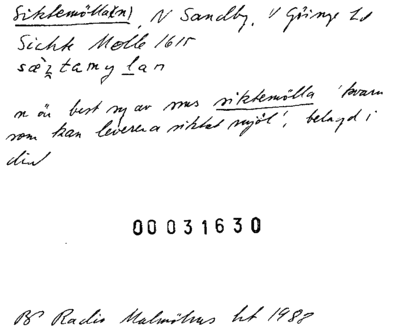 Siktemölla(n), N Sandby, V Göinge hd
Sichte Mølle 1615
sæ`ztamylan
n är best sg av sms siktemölla 'kvarn
som kan leverera siktat mjöl', belagd i
dial
00031630
BP Radio Malmöhus ht 1988